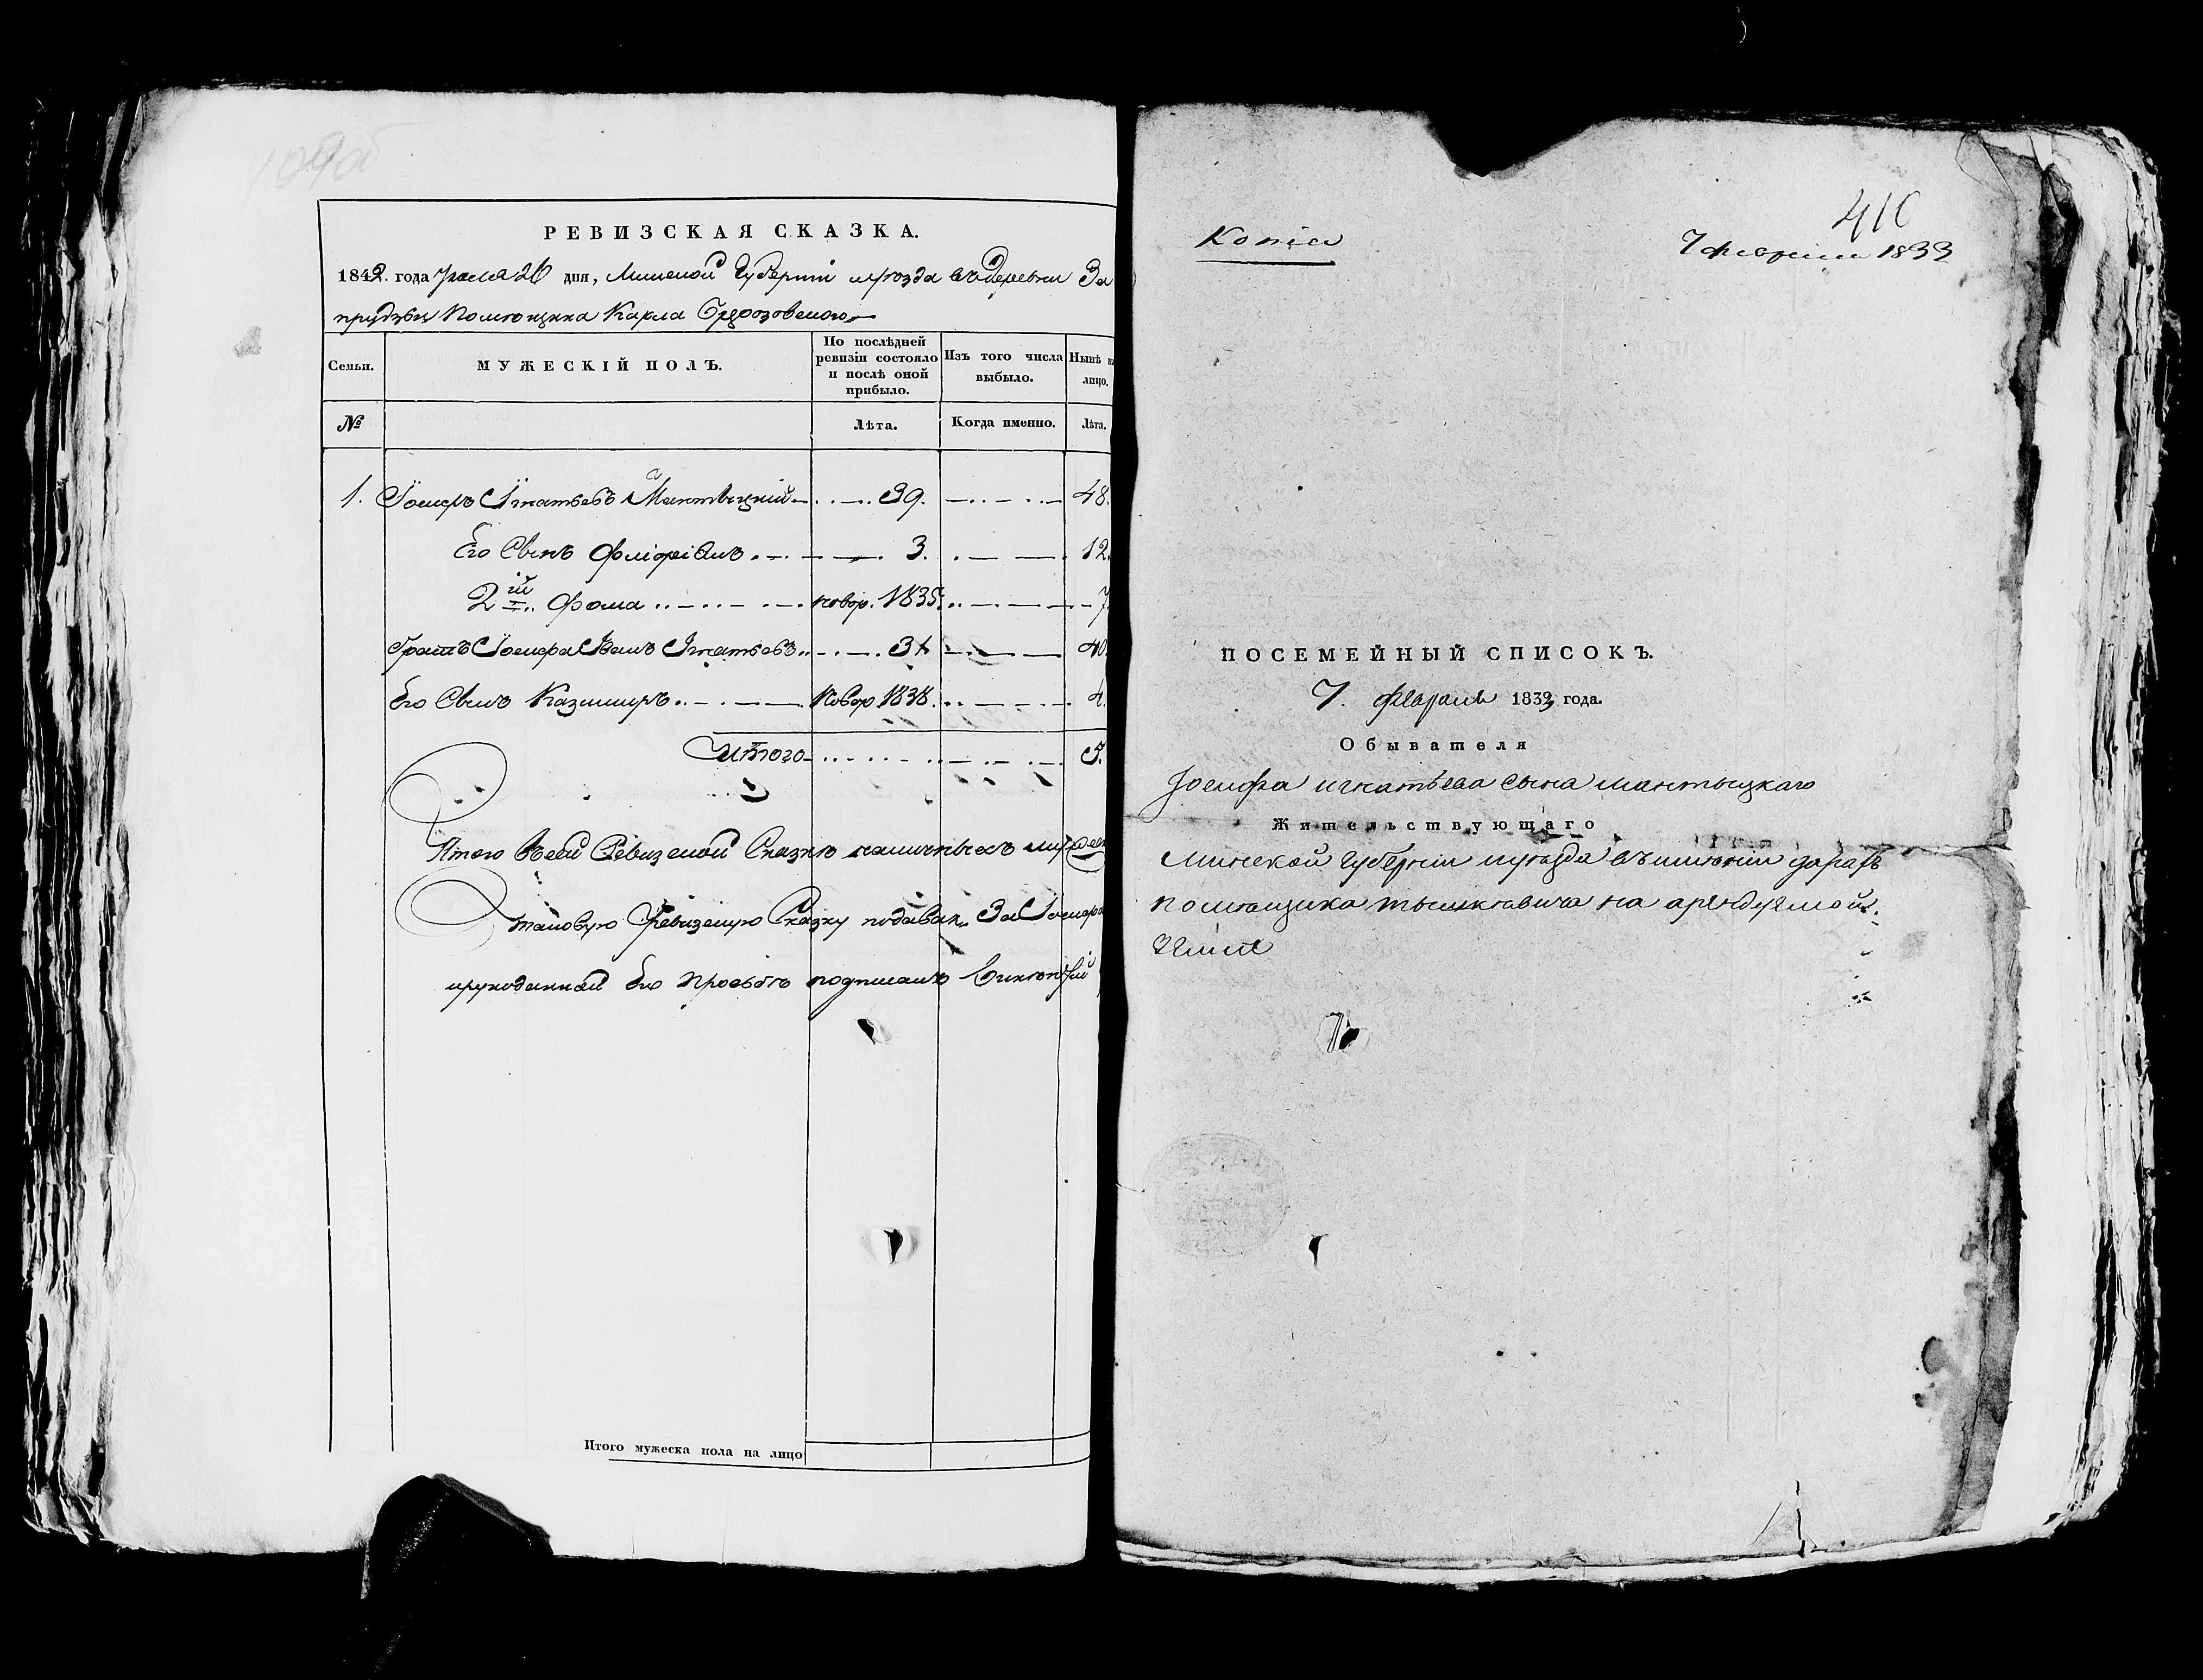 409об
РЕВИЗСКАЯ СКАЗКА.
1842. года Мая 26 дня, Минской Губерніи и уѣзда въ Деревни За
прудзьѣ Помѣщика Карла
Семьи.
МУЖЕСКІЙ ПОЛЪ.
По послѣдней ревизіи состояло и послѣ оной прибыло.
Изъ того числа выбыло.
Нынѣ на лицо.
№
Лѣта.
Когда именно.
Лѣта.
1. Іосифъ Игнатьевъ Мантвицкій 39. 48.
Его Сынъ Флоріанъ 3. 12.
2ій Фома новор. 1835. 7
Братъ Іосифа Иванъ Игнатьевъ 31 40
Его Сынъ Казимиръ Новор 1838. 4.
Итого 5.
Итого въ сей Ревизской Сказкѣ наличныхъ муж
таковую Ревизскую Сказку подавалъ За Іосифа
рукоданной Его Просьбѣ подписалъ Викентій
Итого мужеска пола на лицо
Копія
410
7 февраля 1833
ПОСЕМЕЙНЫЙ СПИСОКЪ.
7. февраля 1833 года.
Обывателя
Іосифа игнатьева сына мантвицкаго
Жительствующаго
Минской губерніи и уѣзда въ имѣніи
помѣщика тышкѣвича на арендуемой
земле